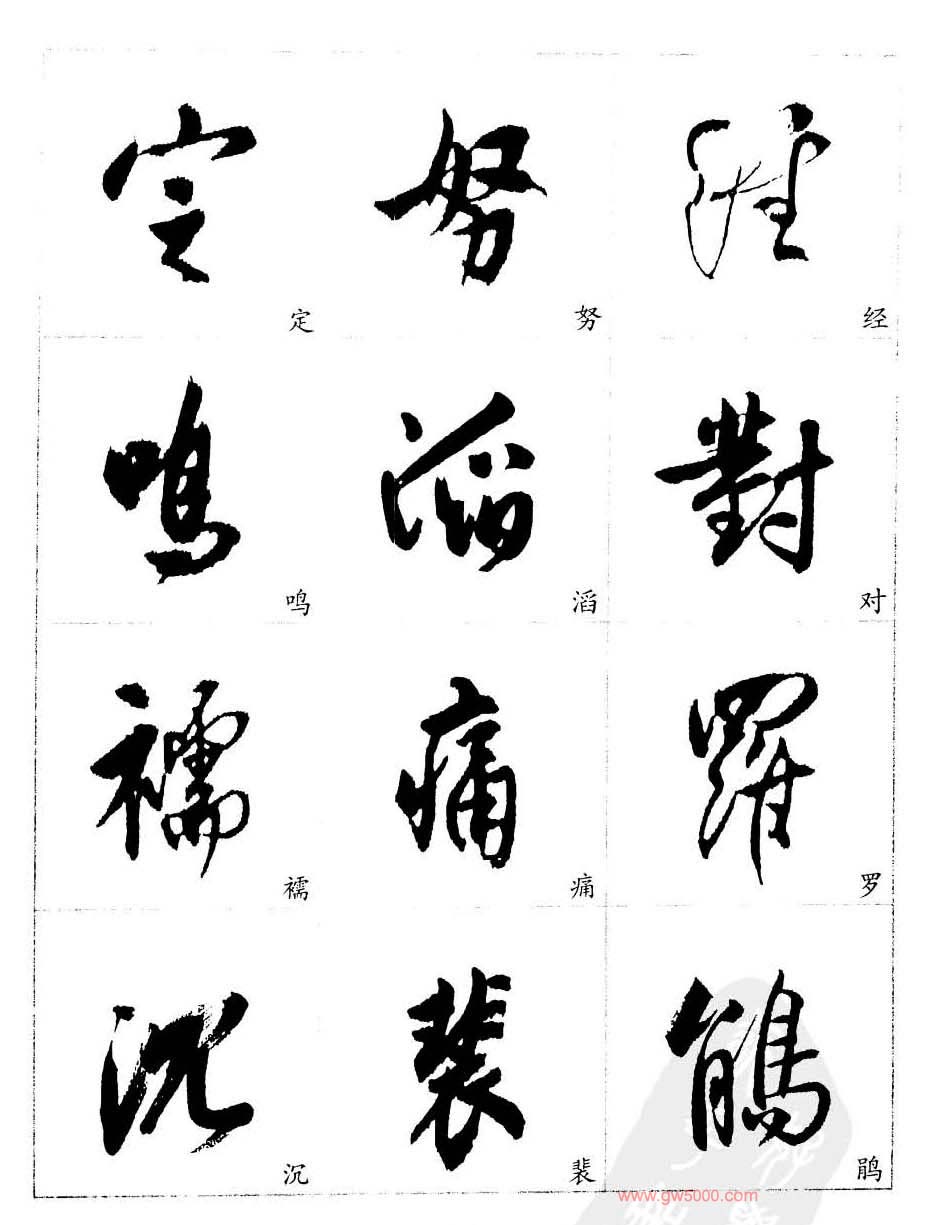 定 努 经
定 努 经
鸣 滔 對
鸣 滔 对
襦 痛 羅
襦 痛 罗
沉 裴 鹃
沉 裴 鹃
www.gw5000.com